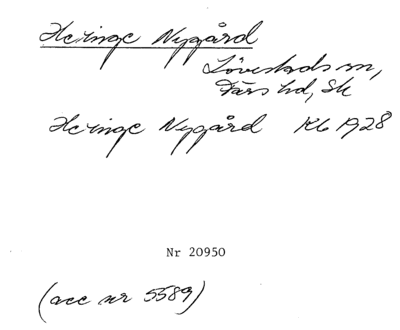 Heinge Nygård
Lövestads sn,
Färs hd, Sk
Heinge Nygård Kb 1928
Nr 20950
(acc nr 5589)